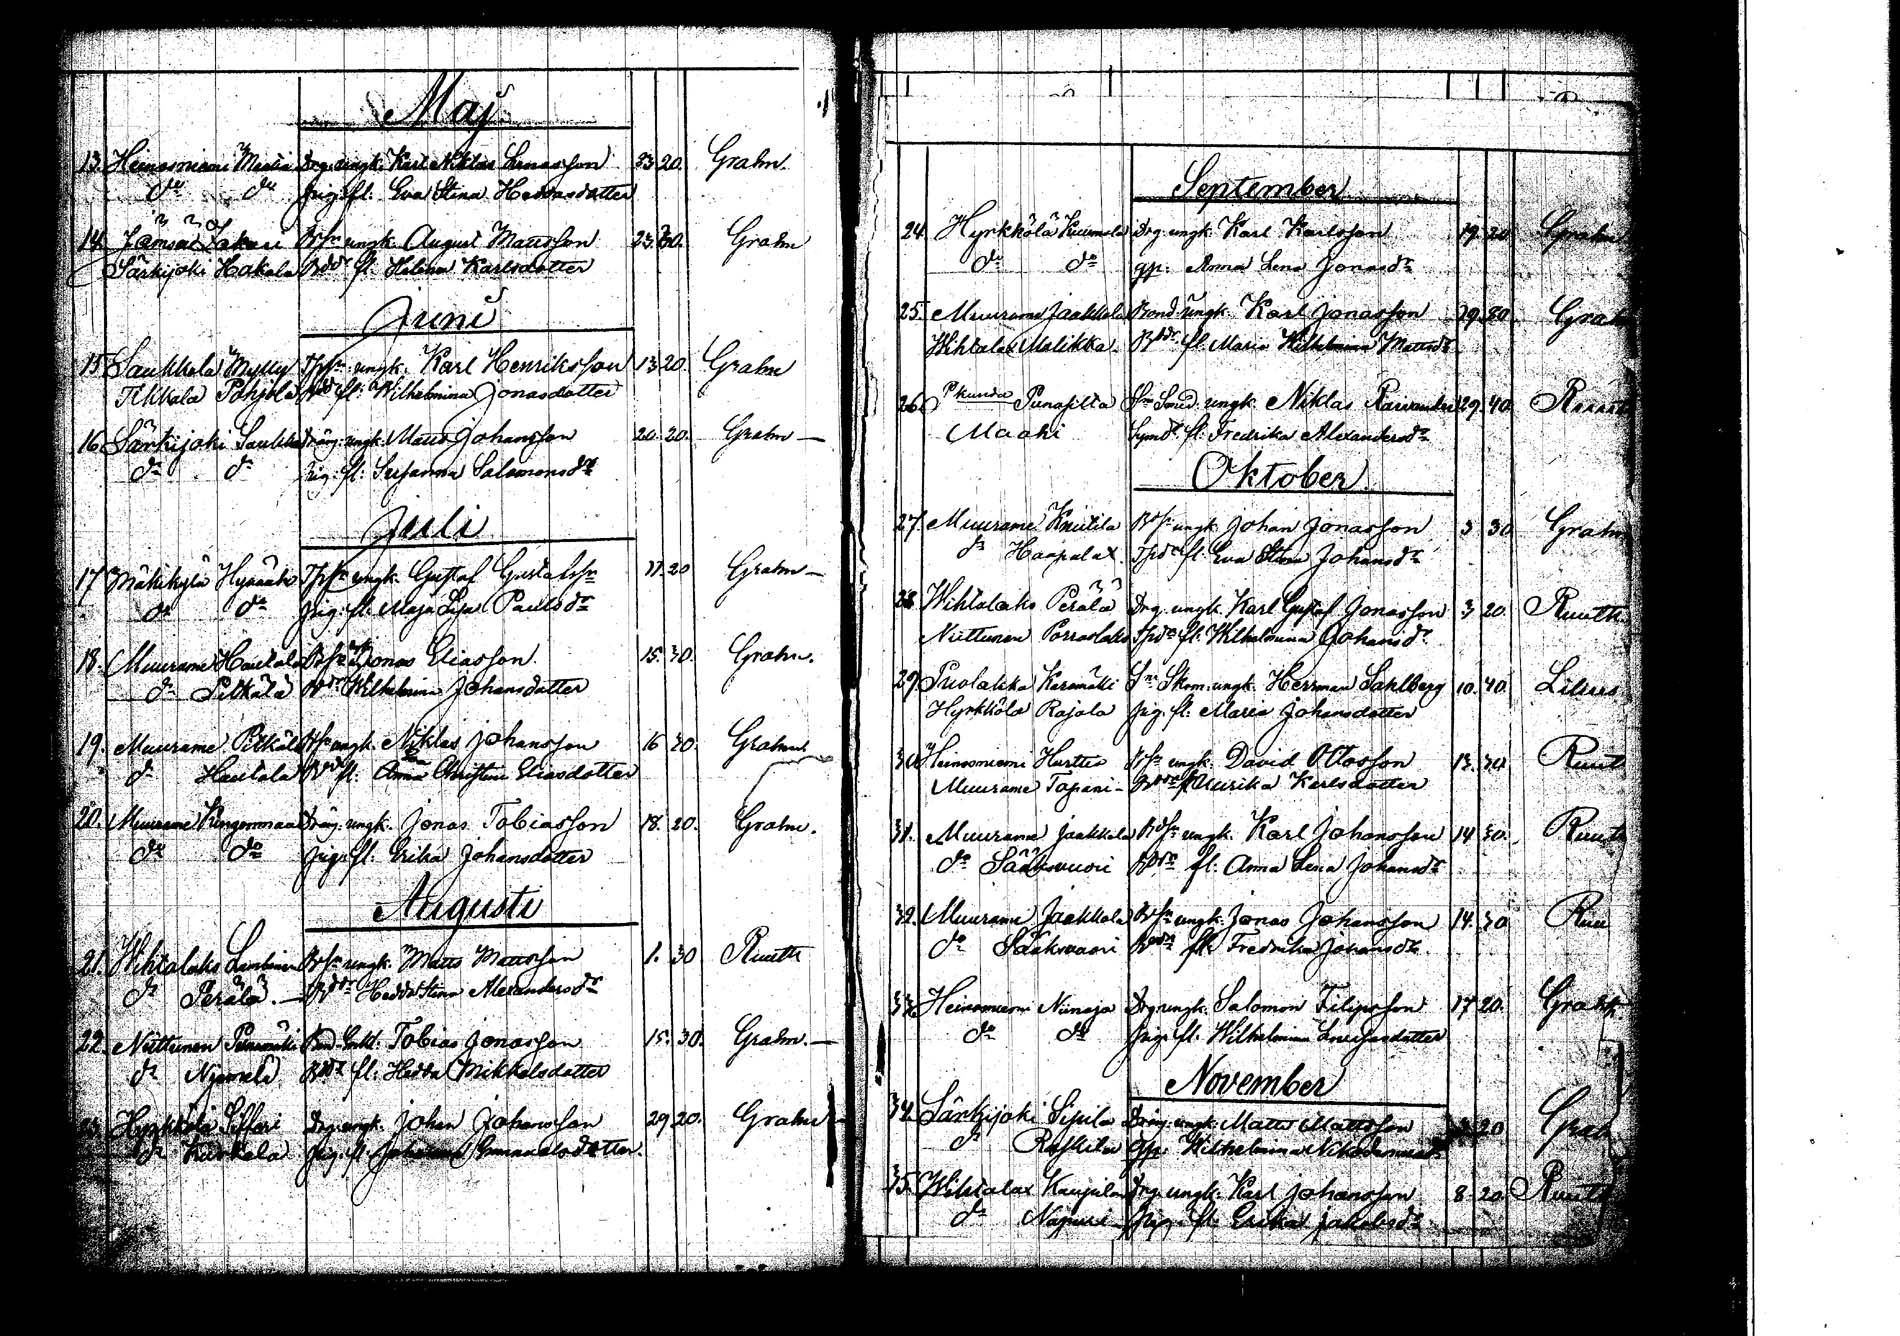 Maj
13. Heinosniemi Mattia Drg. ungk. Karl Niklas Jonasson 23 20. Grahn.
do do Pig. fl. Eva Stina Heddasdotter
14. Jämsä Jakari Bdsn ungk. August Mattsson 23. 30. Grahn
Särkijoki Hakala Bddr fl. Helena Karlsdotter
Juni
15 Saukkola Mylly Tpsn ungk. Karl Henriksson 13 20. Grahn
Tikkala Pohjola Bddr fl. Wilhelmina Jonasdotter
16 Särkijoki Dräng. ungk. Matts Johansson 20. 20. Grahn —
do do Pig. fl. Susanna Salomonsdr
Juli
17 Mäkikylä Tpsn ungk. Gustaf Gustafssn 11. 20 Grahn —
do do Pig. fl. Maja Lisa Paulsdr
18. Muurame Hautala Bdsn Jonas Eliasson 15. 30. Grahn.
do Pitkälä Bdr Wilhelmina Johansdotter
19. Muurame Pitkälä Bdsn ungk. Niklas Johansson 16 30. Grahn
do Hautala Bdr fl. Anna Christina Eliasdotter
20. Muurame Kingonmaa Dräng. ungk. Jonas Tobiasson 18. 20. Grahn.
do do Pig. fl. Erika Johansdotter
Augusti
21. Wihtalaks Bdsn ungk. Matts Mattsson 1. 30 Ruuth
do Perälä. — Bddr Hedda Stina Alexandersdr
22. Niittunen Bond. Enkl. Tobias Jonasson 15. 30. Grahn. —
do Bddr fl. Hedda Mikkelsdotter
23. Hyrkkölä Siffari Drg. ungk. Johan Johansson 29 20. Grahn —
do Karkela Pig. fl. Johanna Emanuelsdotter.
September
24. Hyrkkölä Kuumola Drg. ungk. Karl Karlsson 19. 20 Grahn
do do gp. Anna Lena Jonasdr
25. Muurame Jaakkola Bond. ungk. Karl Jonasson 29. 80. Grahn
Wihtalax Malikka. Bddr fl. Maria Wilhelmina Mattsdr
26. Pkunda Punapitta Sn Smed. ungk. Niklas 29. 40. Ruuth
Maaki fl. Fredrika Alexandersdr
Oktober
27. Muurame Knutila Bdsn ungk. Johan Jonasson 3 30 Grahn
do Haapala Tpdr fl. Eva Stina Johansdr
28. Wihtalaks Perälä Drg. ungk. Karl Gustaf Jonasson 3 20. Ruuth
Niittunen Porraslaks Tpdr fl. Wilhelmina Johansdr
29. Puolakka Karamäki Sn Skom. ungk. Herrman Sahlberg 10. 40. Lilius
Hyrkkölä Rajala Pig. fl. Maria Johansdotter
30. Heinosniemi Hurttia Bdsn ungk. David Ottosson 13. 30 Ruuth
Muurame Tapani — Bddr fl. Ulrika Karlsdotter
31. Muurame Jaakkola Bdsn ungk. Karl Johansson 14 30. Ruuth
do Sääksvuori Bddr fl. Anna Lena Johansdr
32. Muurame Jaakkola Bdsn ungk. Jonas Johansson 14. 30 Ruu
do Sääksvuori Bddr fl. Fredrika Johansdr
33. Heinosniemi Niinoja Drg. ungk. Salomon Filipsson 17 20. Grahn
do do Pig. fl. Wilhelmina
November
34. Särkijoki Sipila Dräng. ungk. Matts Mattsson 20 Grahn
do Gp. Wilhelmina
35. Wihtalax Kaupila Drg. ungk. Karl Johansson 8. 20. Ruuth
do Napuri — Pig. fl. Erika Jakobsdr